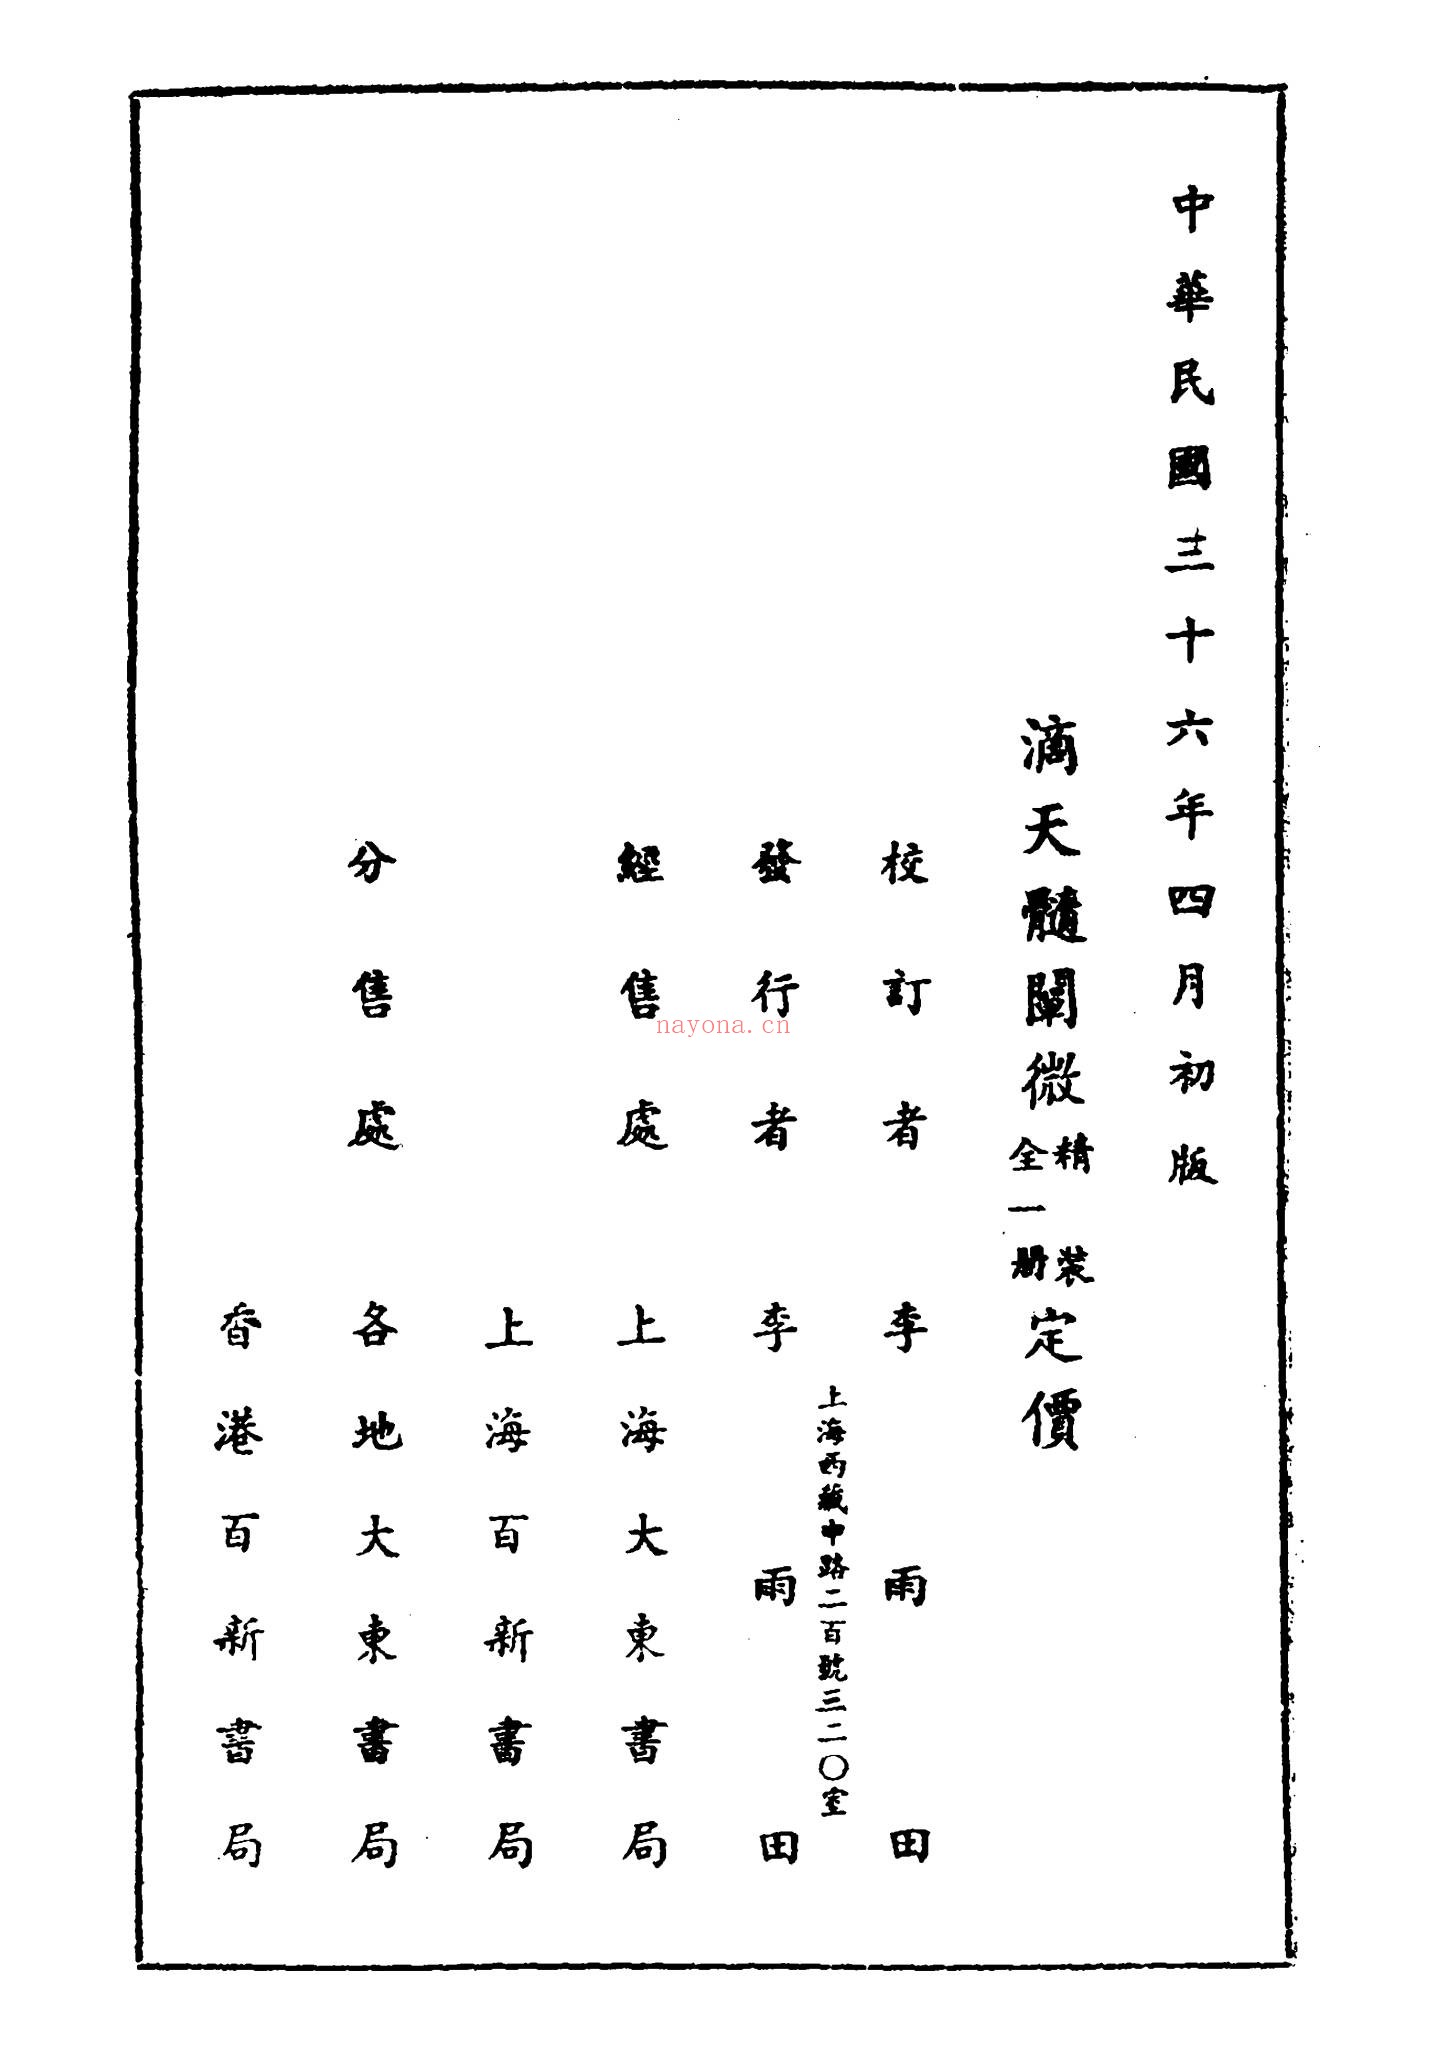 中華民國三十六年四月初版
滴天髓闡微精裝全一册定價
校訂者 李雨田
上海西藏中路二百號三二〇室
發行者 李雨田
經售處 上海大東書局
上海百新書局
分售處 各地大東書局
香港百新書局
nayona.cn